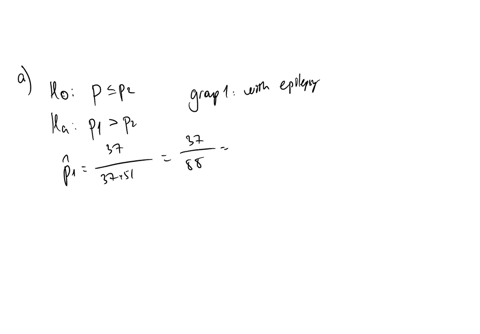 a)
H0: p ≤ p2 group 1: with epilepsy
Ha: p1 > p2
p̂1 = 37 / 37+51 = 37 / 88 =